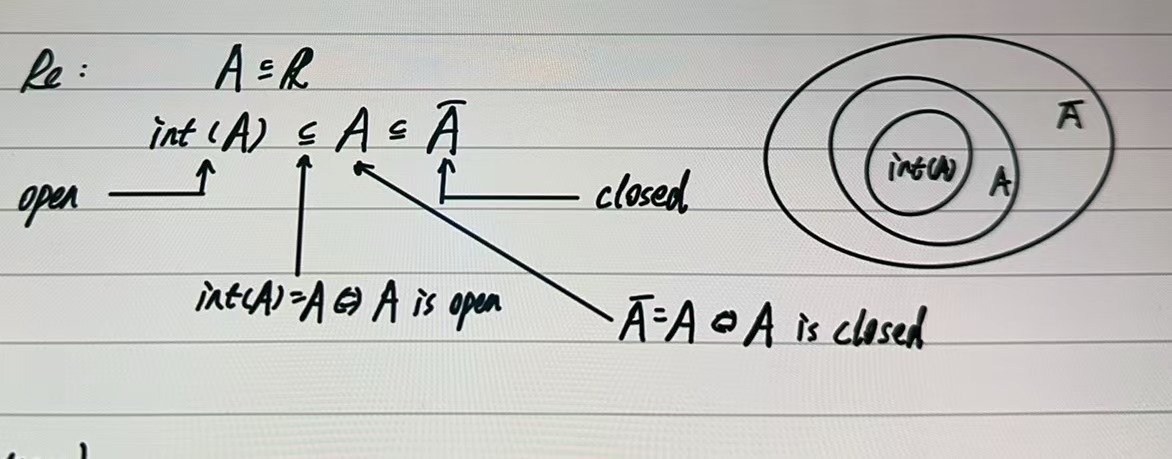 Re: A ⊆ ℝ
int(A) ⊆ A ⊆ A̅
open
closed
int(A)=A ⇔ A is open
A̅=A ⇔ A is closed
A̅
int(A)
A